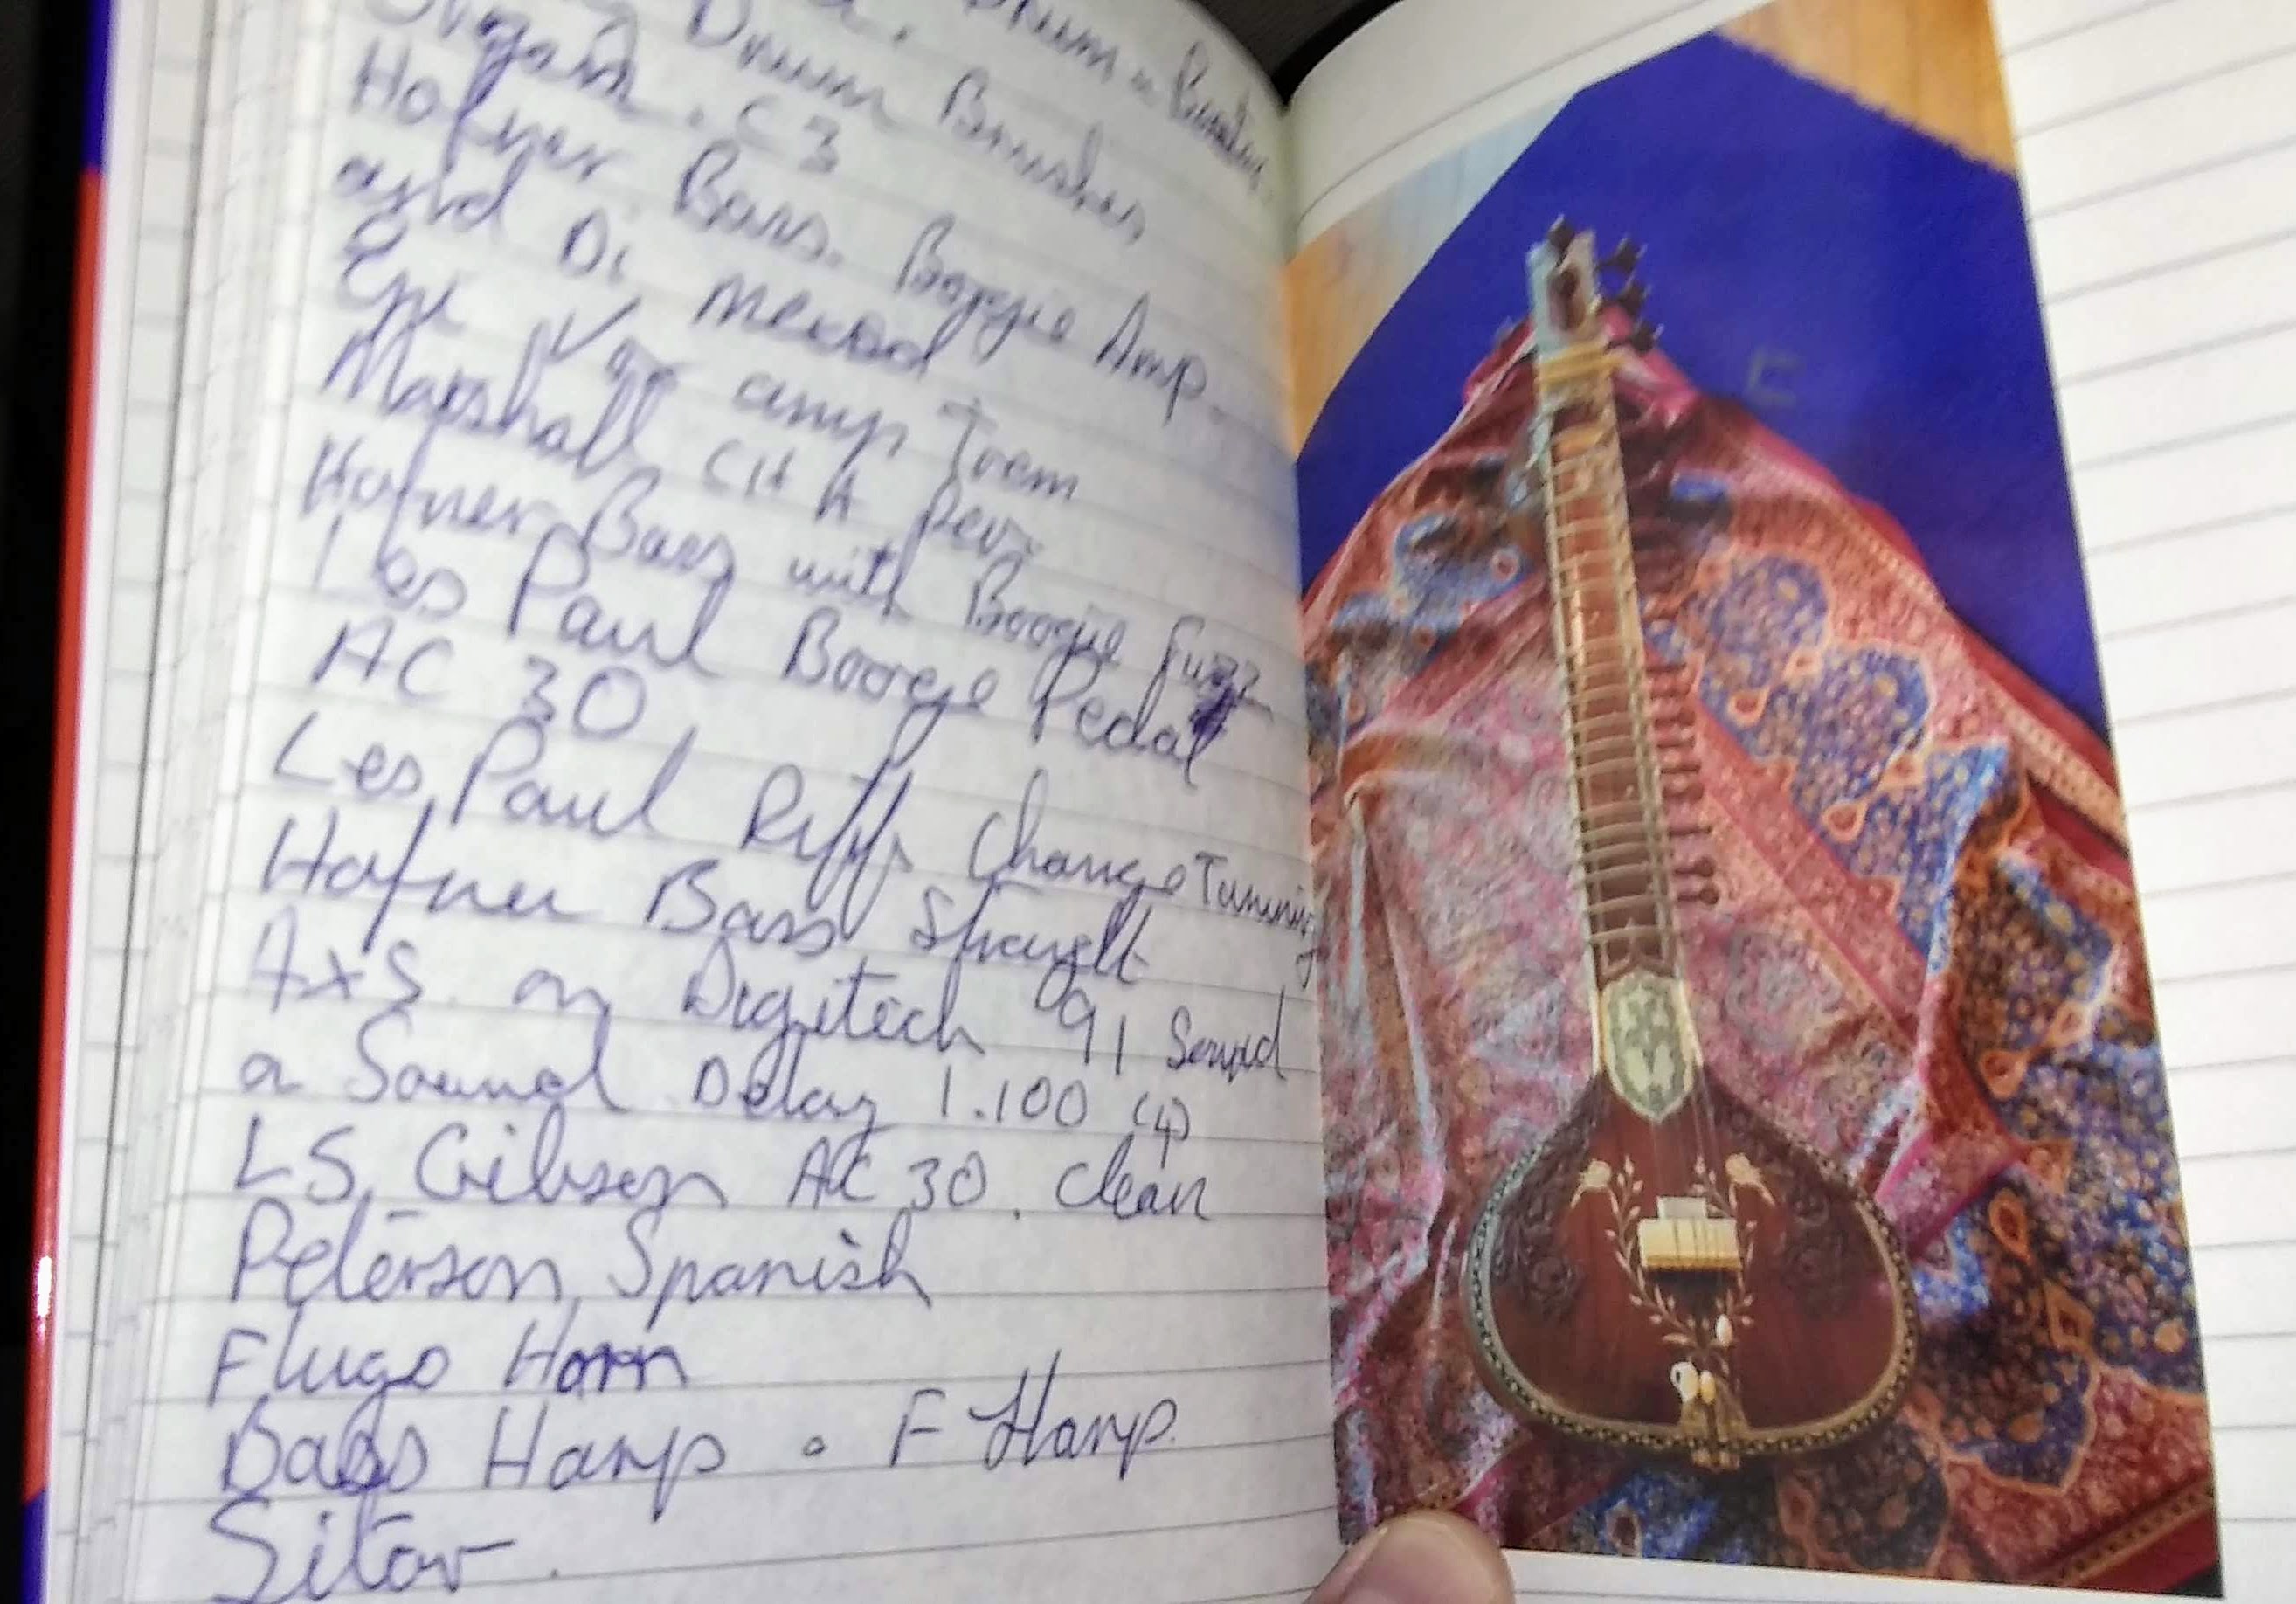 Drum
Drum Brushes
Organ. C3
Hofner Bass. Boogie Amp.
and Di
Epi Vox amp Trem
Marshall CH A Rev.
Hofner Bass with Boogie Fuzz
Les Paul Boogie Pedal
AC 30
Les Paul Riff Change Tuning
Hofner Bass Straight
AxS. on Digitech 91 Sound
a Sound Delay 1.100 (4)
LS Gibson AC 30. Clean
Peterson Spanish
Flugo Horn
Bass Harp. F Harp.
Sitar.